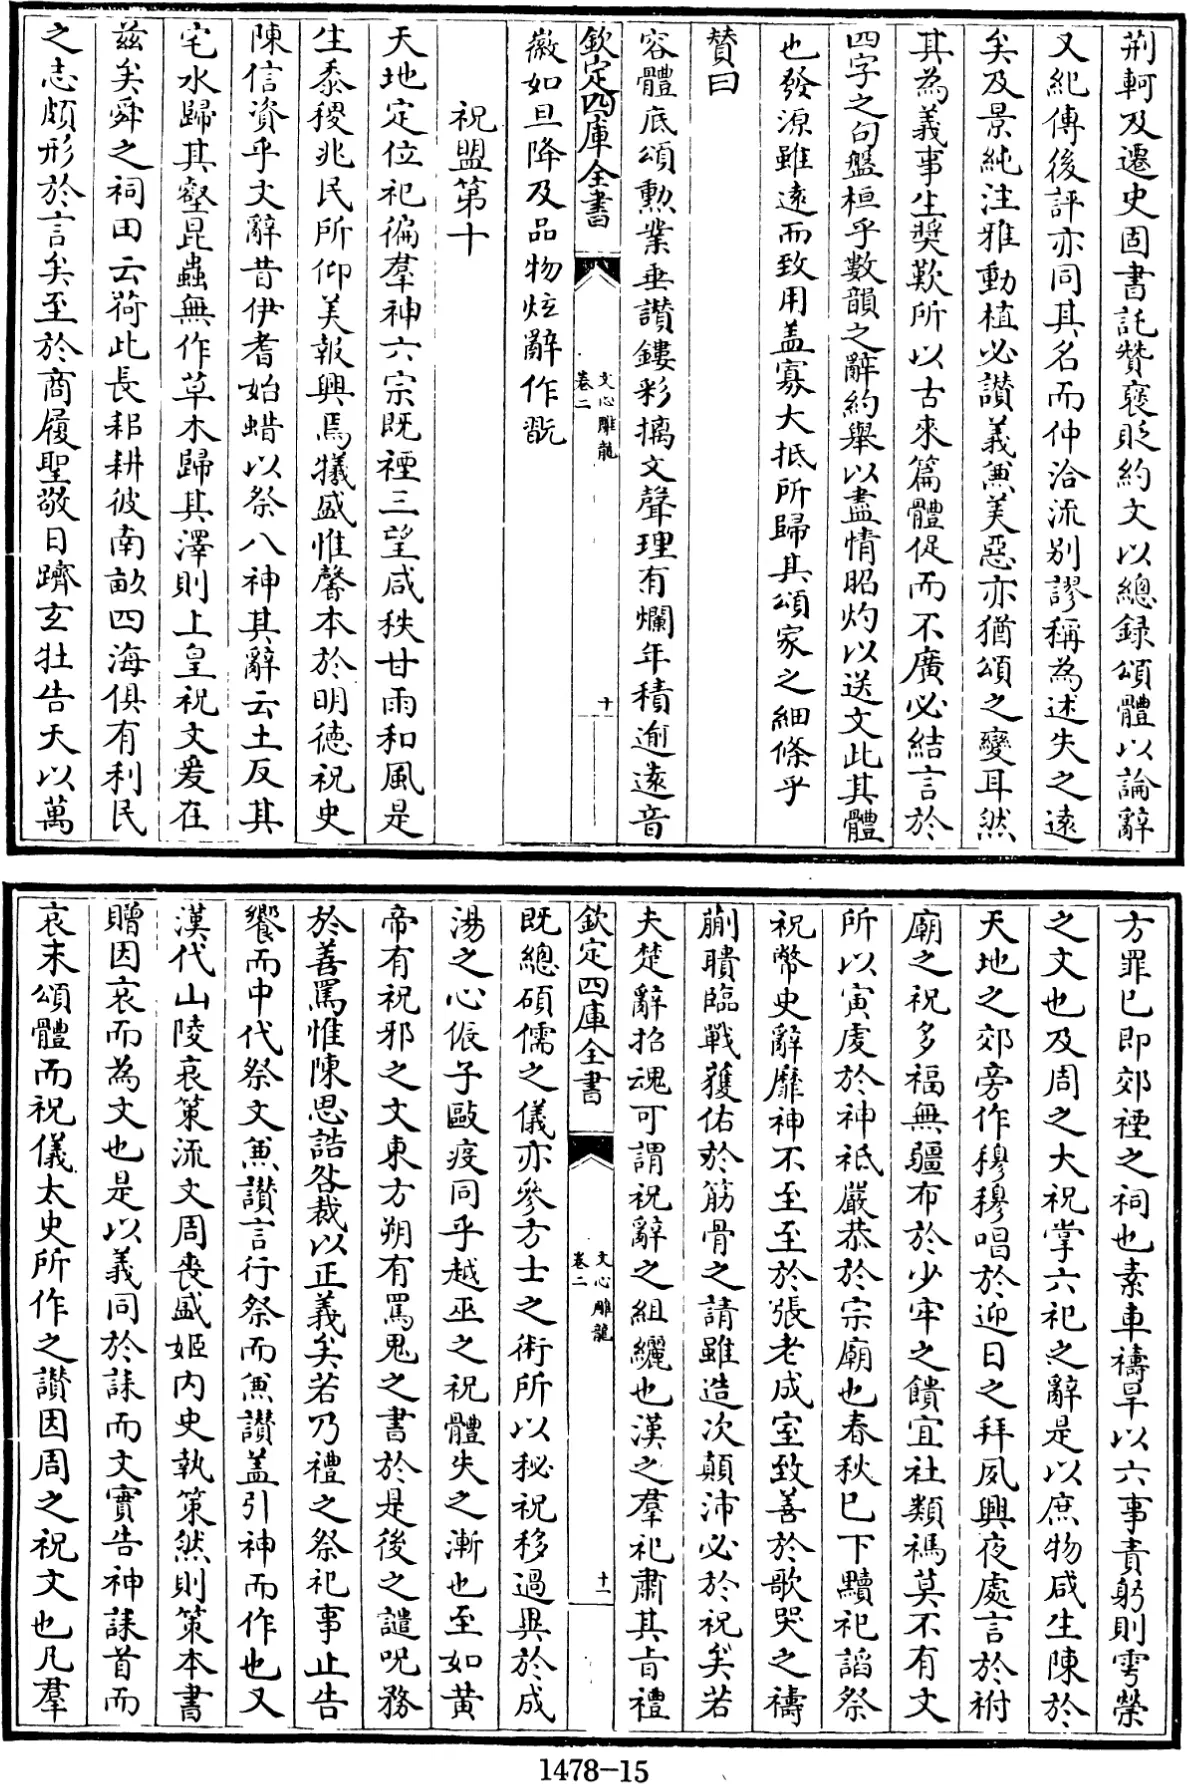 荆軻及遷史固書託贊褒貶約文以總録頌體以論辭
又紀傳後評亦同其名而仲洽流别謬稱為述失之遠
矣及景純注雅動植必讃義兼美惡亦猶頌之變耳然
其為義事生奬歎所以古來篇體促而不廣必結言於
四字之句盤桓乎數韻之辭約舉以盡情昭灼以送文此其體
也發源雖遠而致用盖寡大抵所歸其頌家之細條乎
賛曰
容體底頌勲業垂讃鏤彩摛文聲理有爛年積逾遠音
欽定四庫全書
文心雕龍
卷二
十
徽如旦降及品物炫辭作翫
祝盟第十
天地定位祀徧羣神六宗既禋三望咸秩甘雨和風是
生黍稷兆民所仰美報興焉犧盛惟馨本於明德祝史
陳信資乎文辭昔伊耆始蜡以祭八神其辭云土反其
宅水歸其壑昆蟲無作草木歸其澤則上皇祝文爰在
兹矣舜之祠田云荷此長耜耕彼南畝四海俱有利民
之志頗形於言矣至於商履聖敬日躋玄牡告天以萬
方罪已即郊禋之祠也素車禱旱以六事責躬則雩禜
之文也及周之大祝掌六祀之辭是以庶物咸生陳於
天地之郊旁作穆穆唱於迎日之拜夙興夜處言於祔
廟之祝多福無疆布於少牢之饋宜社類禡莫不有文
所以寅䖍於神祇嚴恭於宗廟也春秋已下黷祀諂祭
祝幣史辭靡神不至至於張老成室致善於歌哭之禱
蒯聵臨戰獲佑於筋骨之請雖造次顛沛必於祝矣若
夫楚辭招魂可謂祝辭之組纚也漢之羣祀肅其旨禮
欽定四庫全書
文心雕龍
卷二
十一
既總碩儒之儀亦參方士之術所以秘祝移過異於成
湯之心侲子毆疫同乎越巫之祝體失之漸也至如黄
帝有祝邪之文東方朔有罵鬼之書於是後之譴呪務
於善罵惟陳思誥咎裁以正義矣若乃禮之祭祀事止告
饗而中代祭文兼讃言行祭而兼讃盖引神而作也又
漢代山陵哀策流文周喪盛姬内史執策然則策本書
贈因哀而為文也是以義同於誄而文實告神誄首而
哀末頌體而祝儀太史所作之讃因周之祝文也凡羣
1478-15